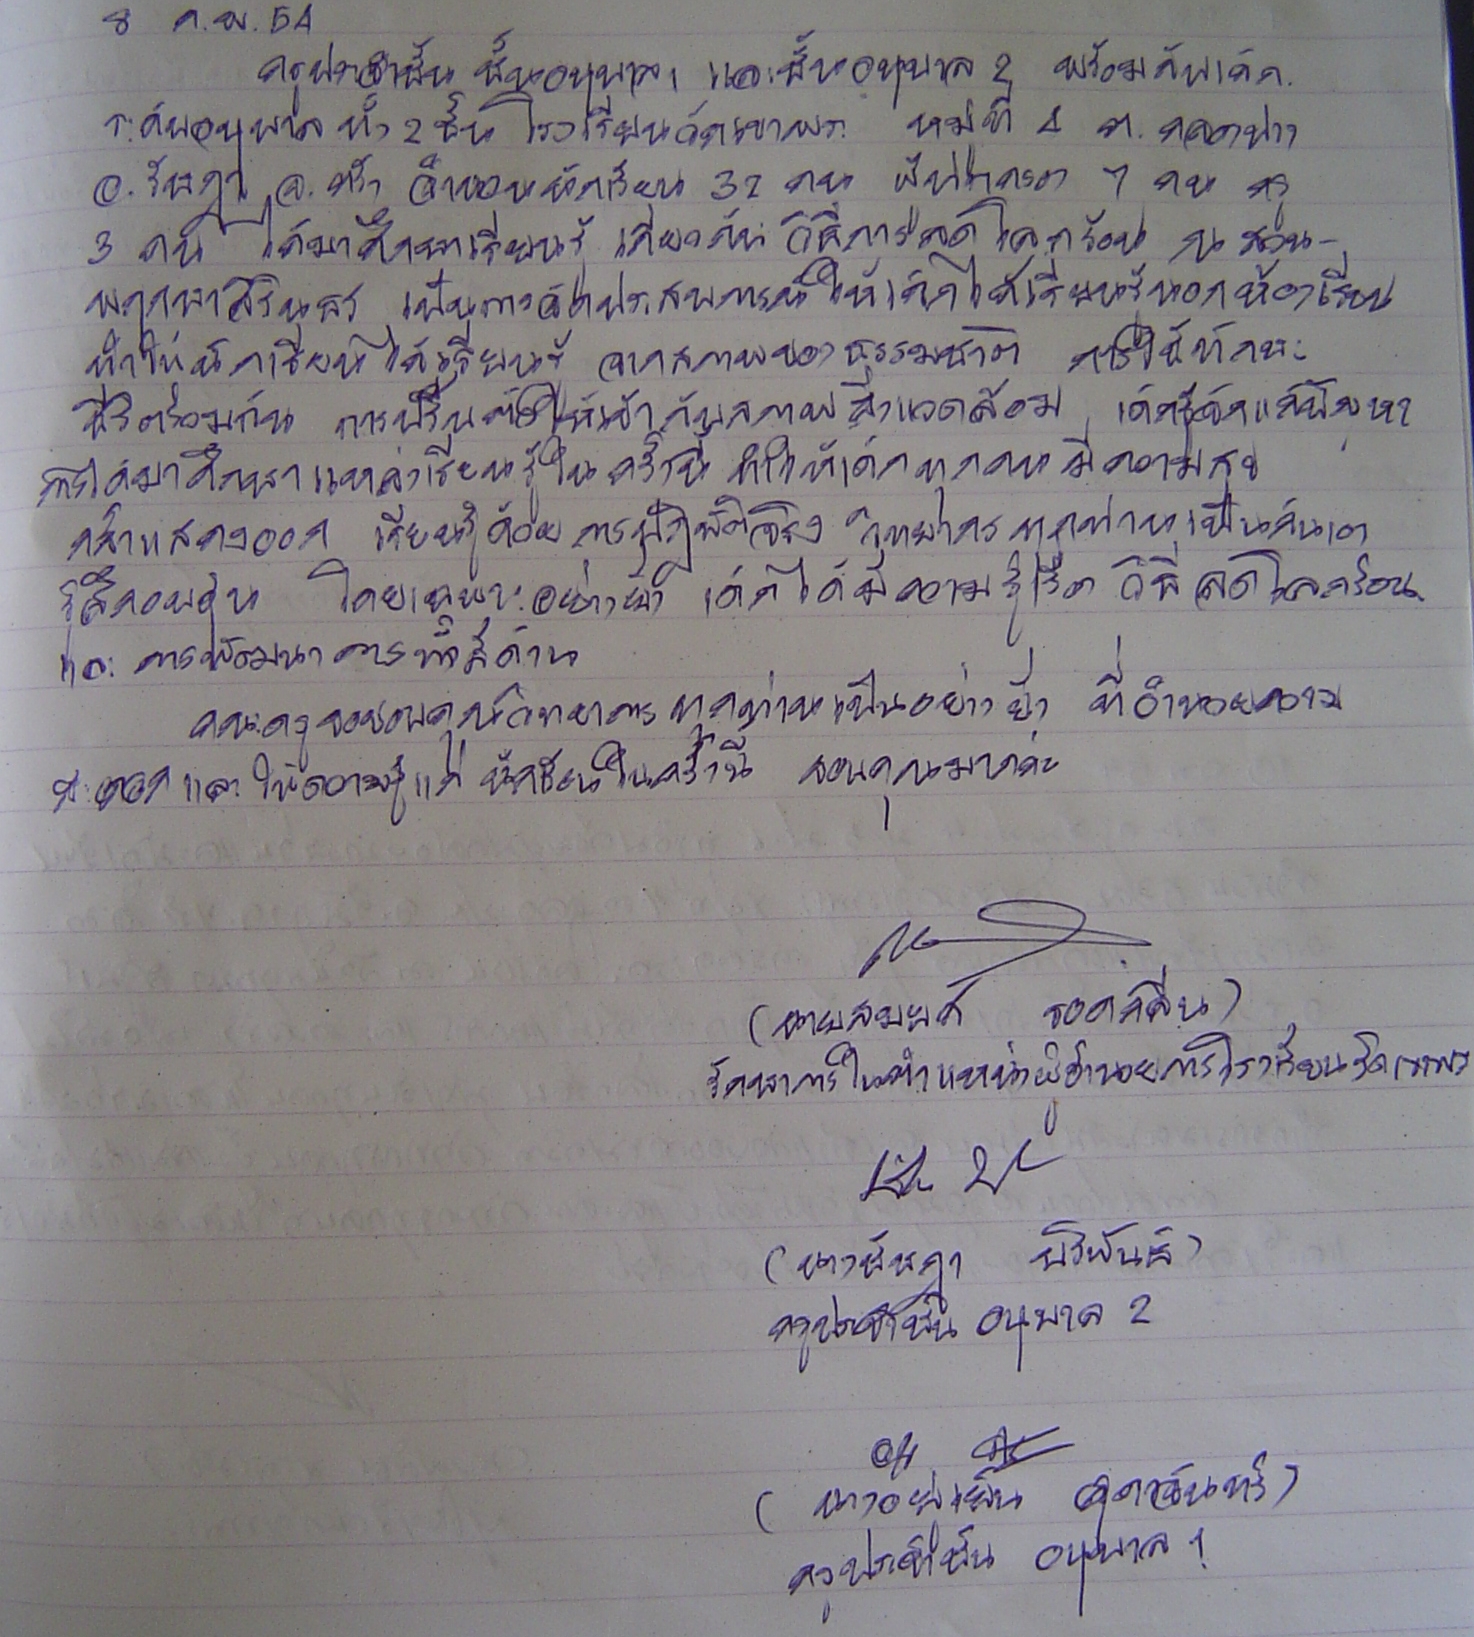 8 ก.พ. 54
ครูประจำชั้น ชั้นอนุบาล 1 และชั้นอนุบาล 2 พร้อมกับเด็ก
ระดับอนุบาลทั้ง 2 ชั้น โรงเรียนวัดเขาพระ หมู่ที่ 4 ต.คลองปาง
อ.รัษฎา จ.ตรัง จำนวนนักเรียน 32 คน ผู้ปกครอง 7 คน ครู
3 คน ได้มาศึกษาเรียนรู้ เกี่ยวกับ วิธีการลดโลกร้อน ณ สวน-
พฤกษาสิรินธร เป็นการจัดประสบการณ์ให้เด็กได้เรียนรู้นอกห้องเรียน
ทำให้นักเรียนได้เรียนรู้ จากสภาพของธรรมชาติ การใช้ทักษะ
ชีวิตร่วมกัน การปรับตัวให้เข้ากับสภาพสิ่งแวดล้อม เด็กรู้จักแก้ปัญหา
การได้มาศึกษาแหล่งเรียนรู้ในครั้งนี้ ทำให้เด็กทุกคนมีความสุข
กล้าแสดงออก เรียนรู้ด้วยการปฏิบัติจริง วิทยากรทุกท่านเป็นกันเอง
รู้สึกอบอุ่น โดยเฉพาะอย่างยิ่ง เด็กได้มีความรู้เรื่อง วิธีลดโลกร้อน
และ การพัฒนาการทั้งสี่ด้าน
คณะครูขอขอบคุณวิทยากรทุกท่านเป็นอย่างยิ่ง ที่อำนวยความ
สะดวก และให้ความรู้แก่ นักเรียนในครั้งนี้ ขอบคุณมากค่ะ
(นายสมยศ รอดกลิ่น)
รักษาการในตำแหน่งผู้อำนวยการโรงเรียนวัดเขาพระ
(นางนัษฎา
ครูประจำชั้น อนุบาล 2
ครูประจำชั้น อนุบาล 1